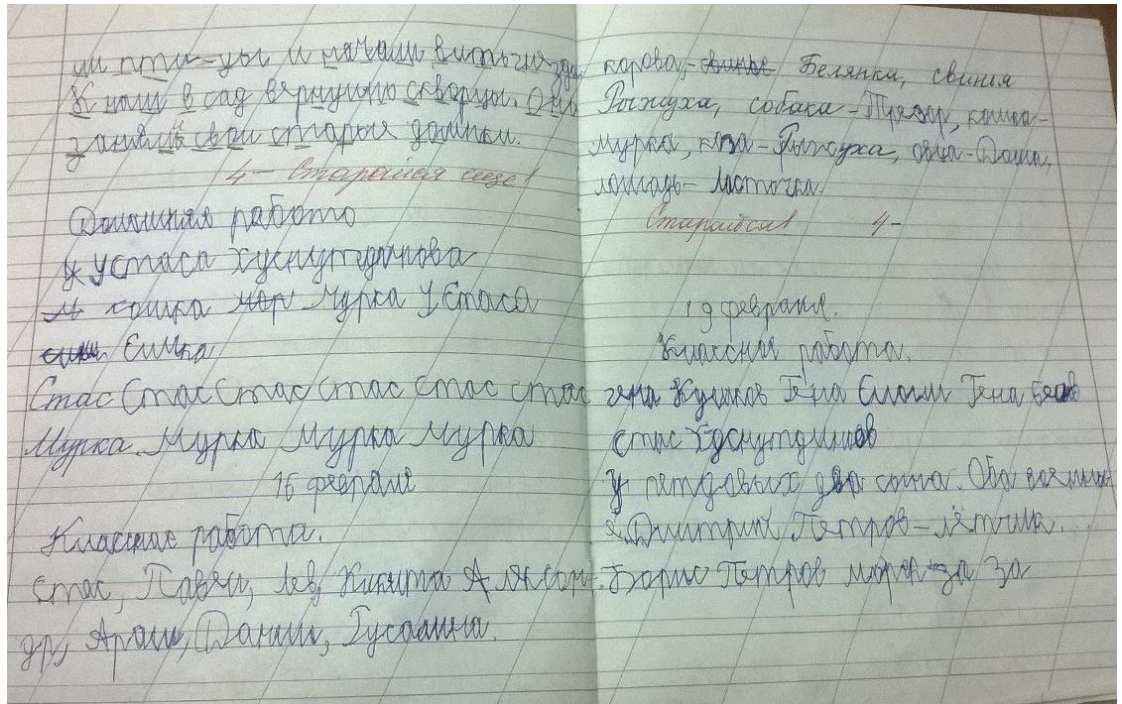 ли пти-цы и начали вить гнёзда
К наш в сад вернулись скворцы. Они
заняли свои старые домики.
4- Старайся еще!
Домашняя работа
у Стаса Хуснутдинова
кошка мор Мурка У Стаса
Симка
Стас Стас Стас Стас Стас Стас
Мурка Мурка Мурка Мурка
16 февраля
Классная работа.
Стас, Павел, Лев, Никита Алексан-
др, Данил,
корова,- свинья Белянка, свинья
Рыжуха, собака-Трезор, кошка-
мурка, коза-Рыжуха, овца-Даша,
лошадь-Ласточка.
Старайся! 4-
19 февраля.
Классная работа.
гена Куликов Гена Гена
Стас Хуснутдинов
У петровых два сына. Оба
Дмитрий Петров-лётчик.
Борис Петров моряк за за